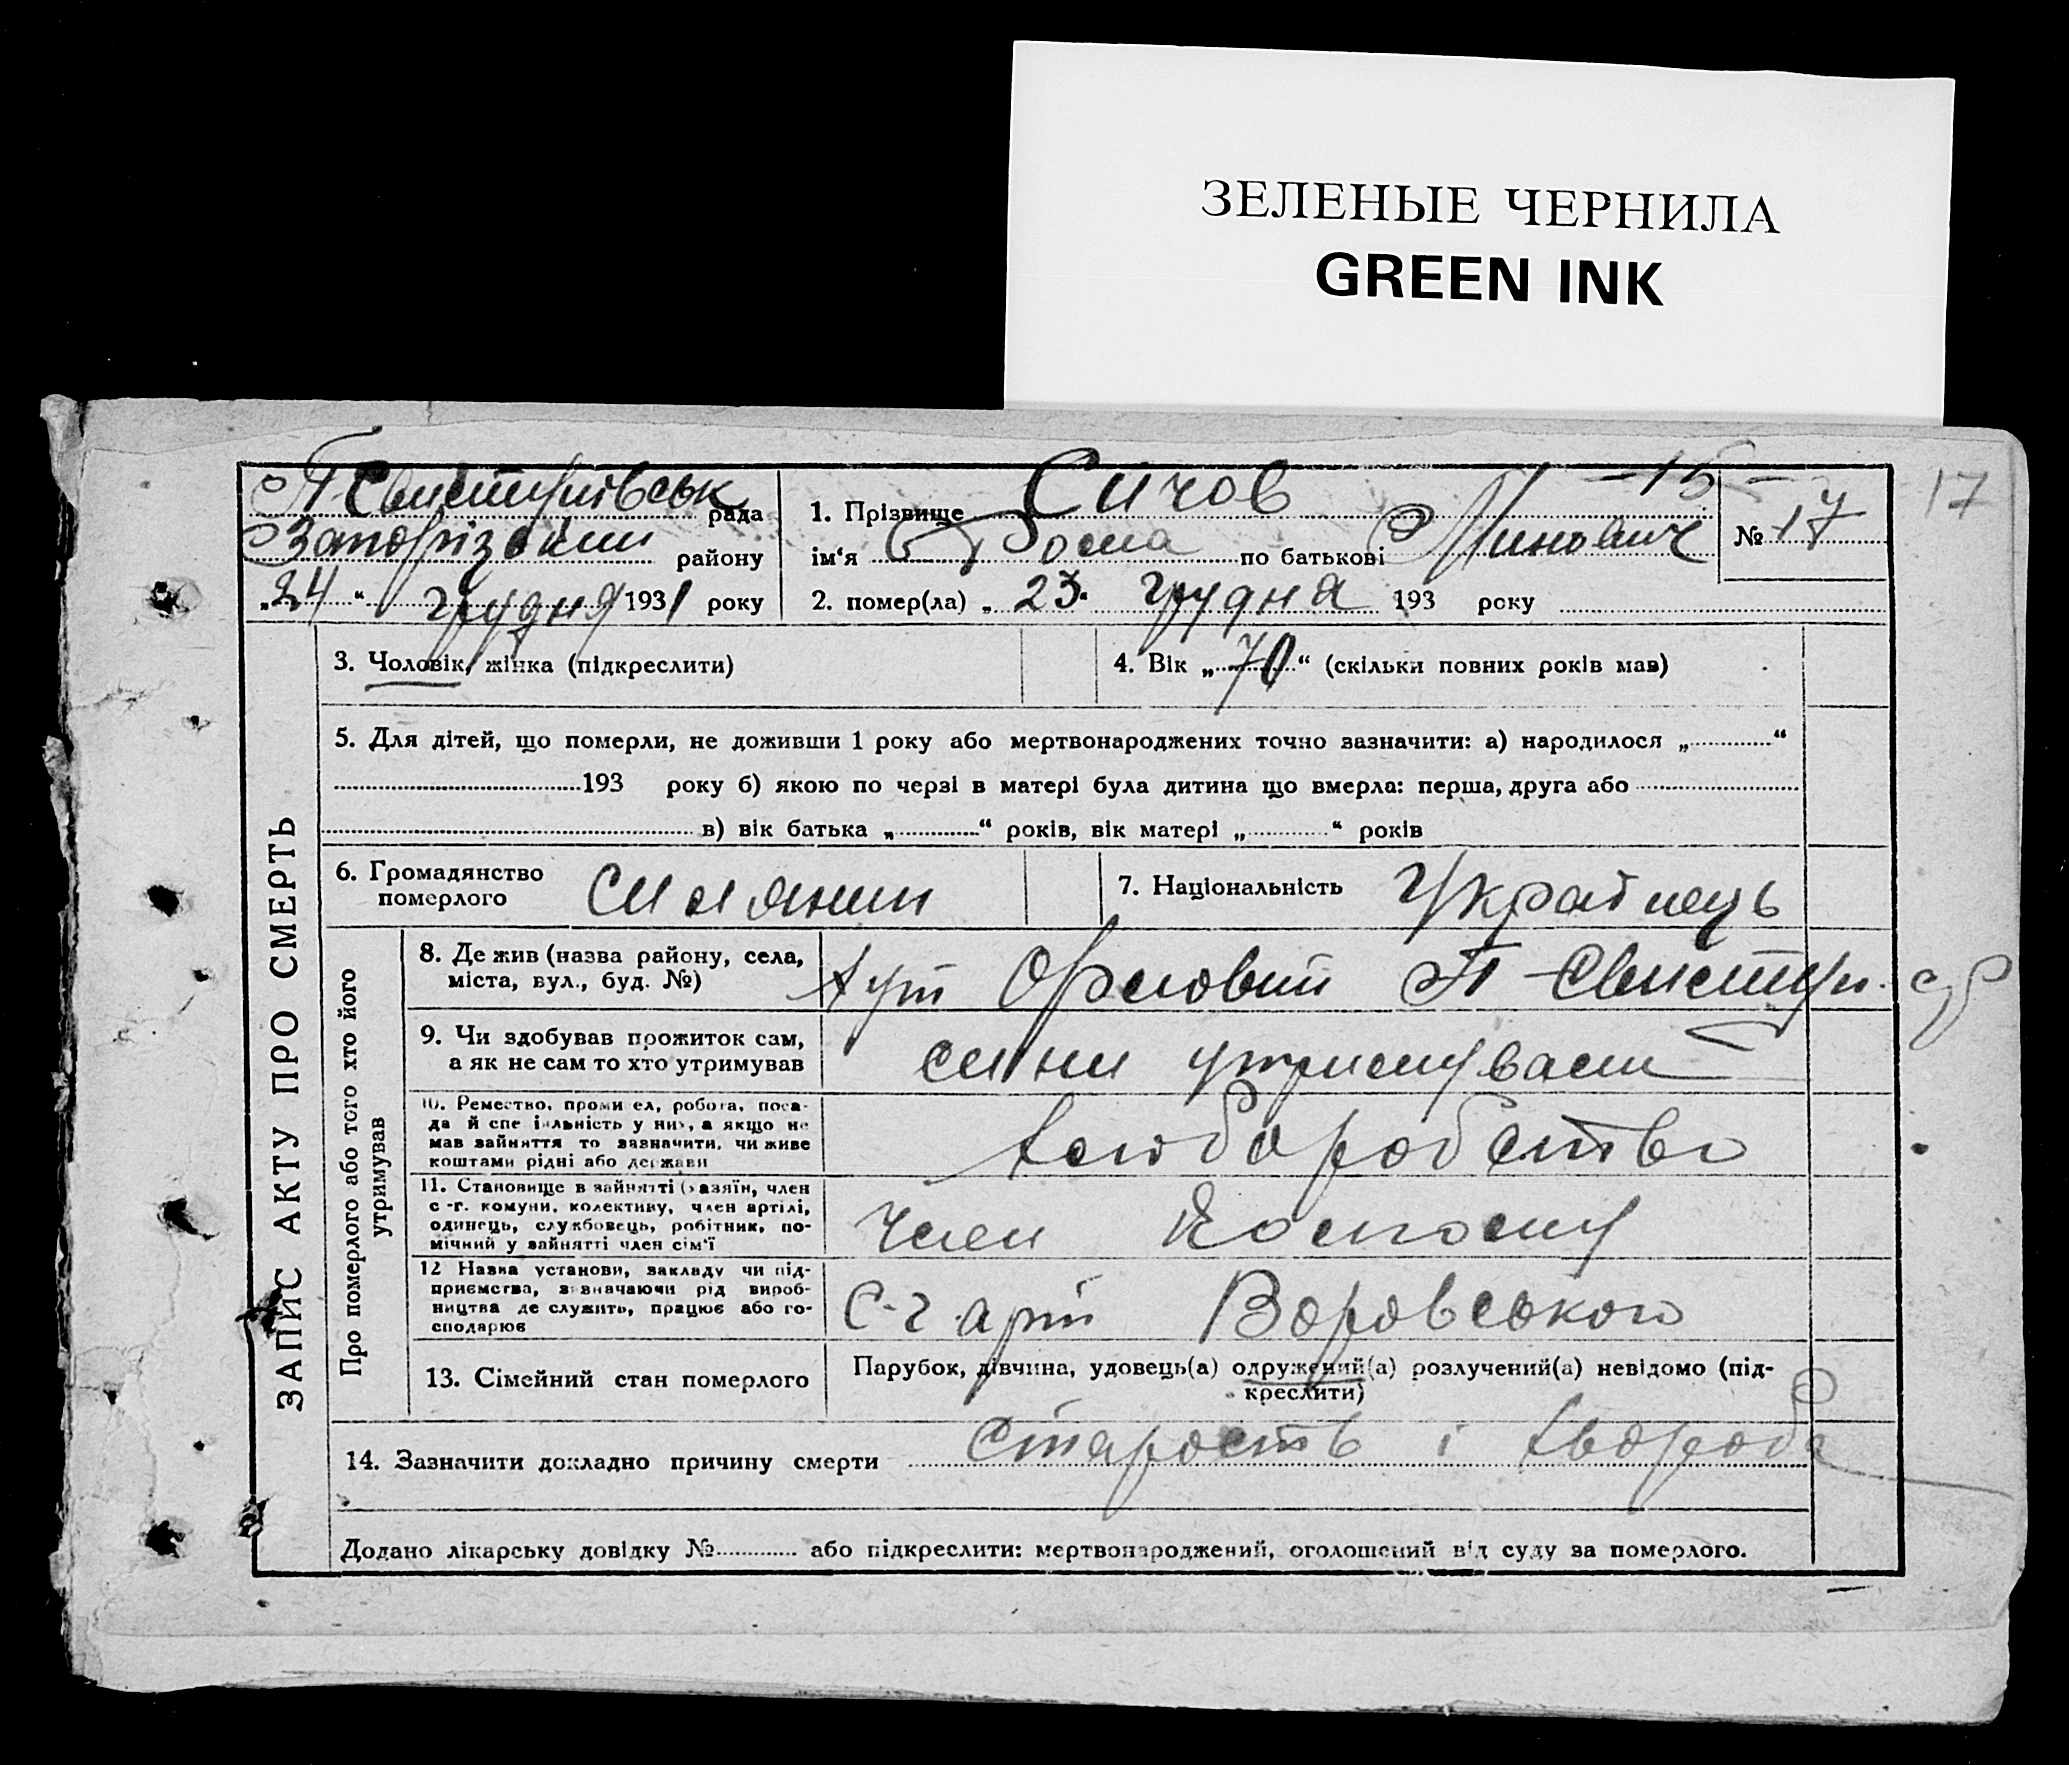 ЗЕЛЕНЫЕ ЧЕРНИЛА
GREEN INK
П-Свистунівськ рада
Запорізький району
„24“ грудня 1931 року
1. Прізвище Сичов -15-
ім'я Фома по батькові Минович
2. помер(ла) „23“ грудня 193 року
№ 17
17
ЗАПИС АКТУ ПРО СМЕРТЬ
3. Чоловік, жінка (підкреслити)
4. Вік „70“ (скільки повних років мав)
5. Для дітей, що померли, не доживши 1 року або мертвонароджених точно зазначити: а) народилося „ “
193 року б) якою по черзі в матері була дитина що вмерла: перша, друга або
в) вік батька „ “ років, вік матері „ “ років
6. Громадянство
померлого
7. Національність Українець
Про померлого або того хто його
утримував
8. Де жив (назва району, села,
міста, вул., буд. №)
хут Орловий П-Свистун.
9. Чи здобував прожиток сам,
а як не сам то хто утримував
сини утримували
10. Ремество, промисел, робота, поса-
да й спеціяльність у них, а якщо не
мав зайняття то зазначити, чи живе
коштами рідні або держави
хлюборобство
11. Становище в зайнятті (хазяїн, член
с.-г. комуни, колективу, член артілі,
одинець, службовець, робітник, по-
мічний у зайнятті член сім'ї
Член
12 Назва установи, закладу чи під-
приємства, зазначаючи рід вироб-
ництва де служить, працює або го-
сподарює
С-г. арт Воровського
13. Сімейний стан померлого
Парубок, дівчина, удовець(а) одружений(а) розлучений(а) невідомо (під-
креслити)
14. Зазначити докладно причину смерти Старость і хвороба
Додано лікарську довідку № або підкреслити: мертвонароджений, оголошений від суду за померлого.